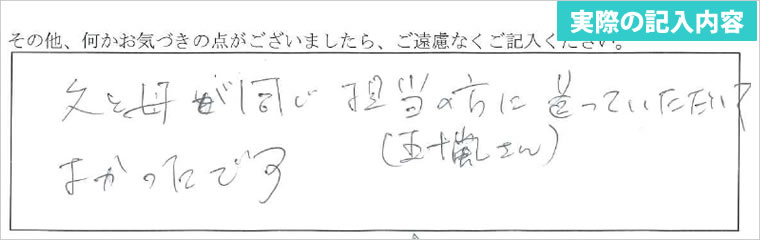 実際の記入内容
その他、何かお気づきの点がございましたら、ご遠慮なくご記入ください。
父と母が同じ担当の方に送っていただいて
(五十嵐さん)
よかったです